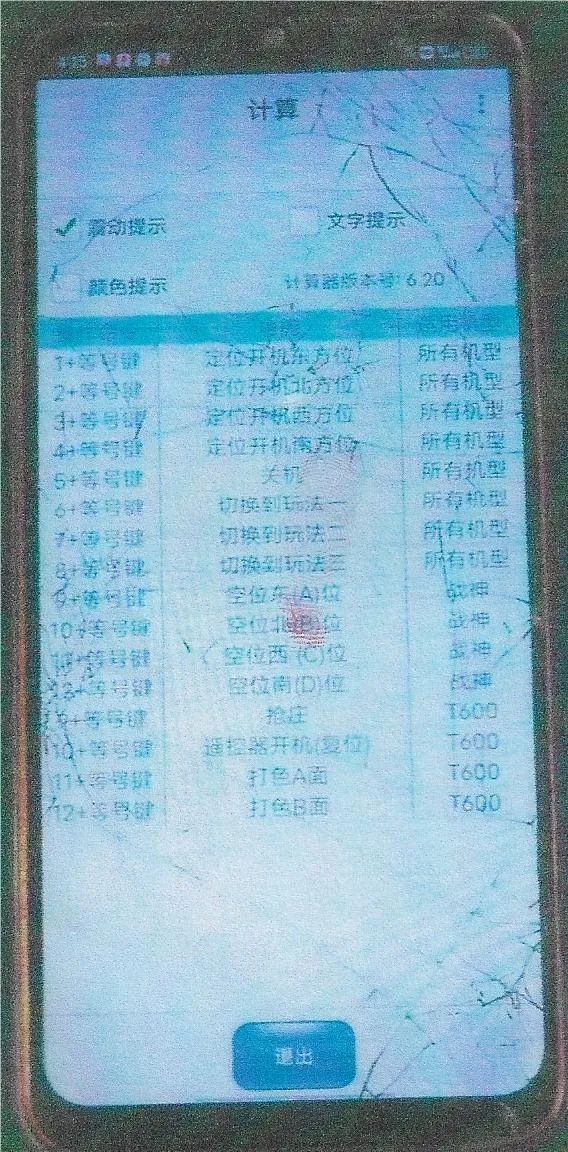 4:35
计算
震动提示 文字提示
颜色提示 计算器版本号: 6.20
1+等号键 定位开机东方位 所有机型
2+等号键 定位开机北方位 所有机型
3+等号键 定位开机西方位 所有机型
4+等号键 定位开机南方位 所有机型
5+等号键 关机 所有机型
6+等号键 切换到玩法一 所有机型
7+等号键 切换到玩法二 所有机型
8+等号键 切换到玩法三 所有机型
9+等号键 空位东(A)位 战神
10+等号键 空位北(B)位 战神
11+等号键 空位西(C)位 战神
12+等号键 空位南(D)位 战神
9+等号键 抢庄 T600
10+等号键 遥控器开机(复位) T600
11+等号键 打色A面 T600
12+等号键 打色B面 T600
退出